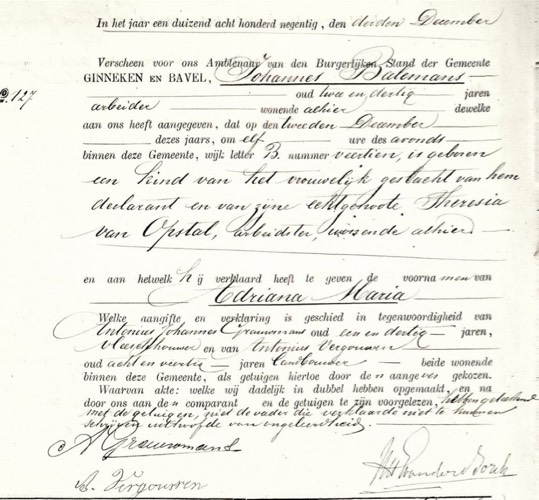 In het jaar een duizend acht honderd negentig, den derden December
Verscheen voor ons Ambtenaar van den Burgerlijken Stand der Gemeente
GINNEKEN EN BAVEL, Johannes Balemans
oud twee en dertig jaren
No. 127
arbeider wonende alhier dewelke
aan ons heeft aangegeven, dat op den tweeden December
dezes jaars, om elf ure des avonds
binnen deze Gemeente, wijk letter B nummer veertien, is geboren
een kind van het vrouwelijk geslacht van hem
declarant en van zijne echtgenoote Theresia
van Opstal, arbeidster, wonende alhier
en aan hetwelk hij verklaard heeft te geven de voornamen van
Adriana Maria
Welke aangifte en verklaring is geschied in tegenwoordigheid van
Antonius Johannes Grauwmans oud een en dertig jaren,
vleeschhouwer en van Antonius Vergouwen
oud acht en veertig jaren landbouwer beide wonende
binnen deze Gemeente, als getuigen hiertoe door den aangever gekozen.
Waarvan akte: welke wij dadelijk in dubbel hebben opgemaakt, en na
door ons aan den comparant en de getuigen te zijn voorgelezen, hebben geteekend
met de getuigen, zijnde de vader die verklaarde niet te kunnen
schrijven uit hoofde van ongeleerdheid.
A Grauwmans
A. Vergouwen